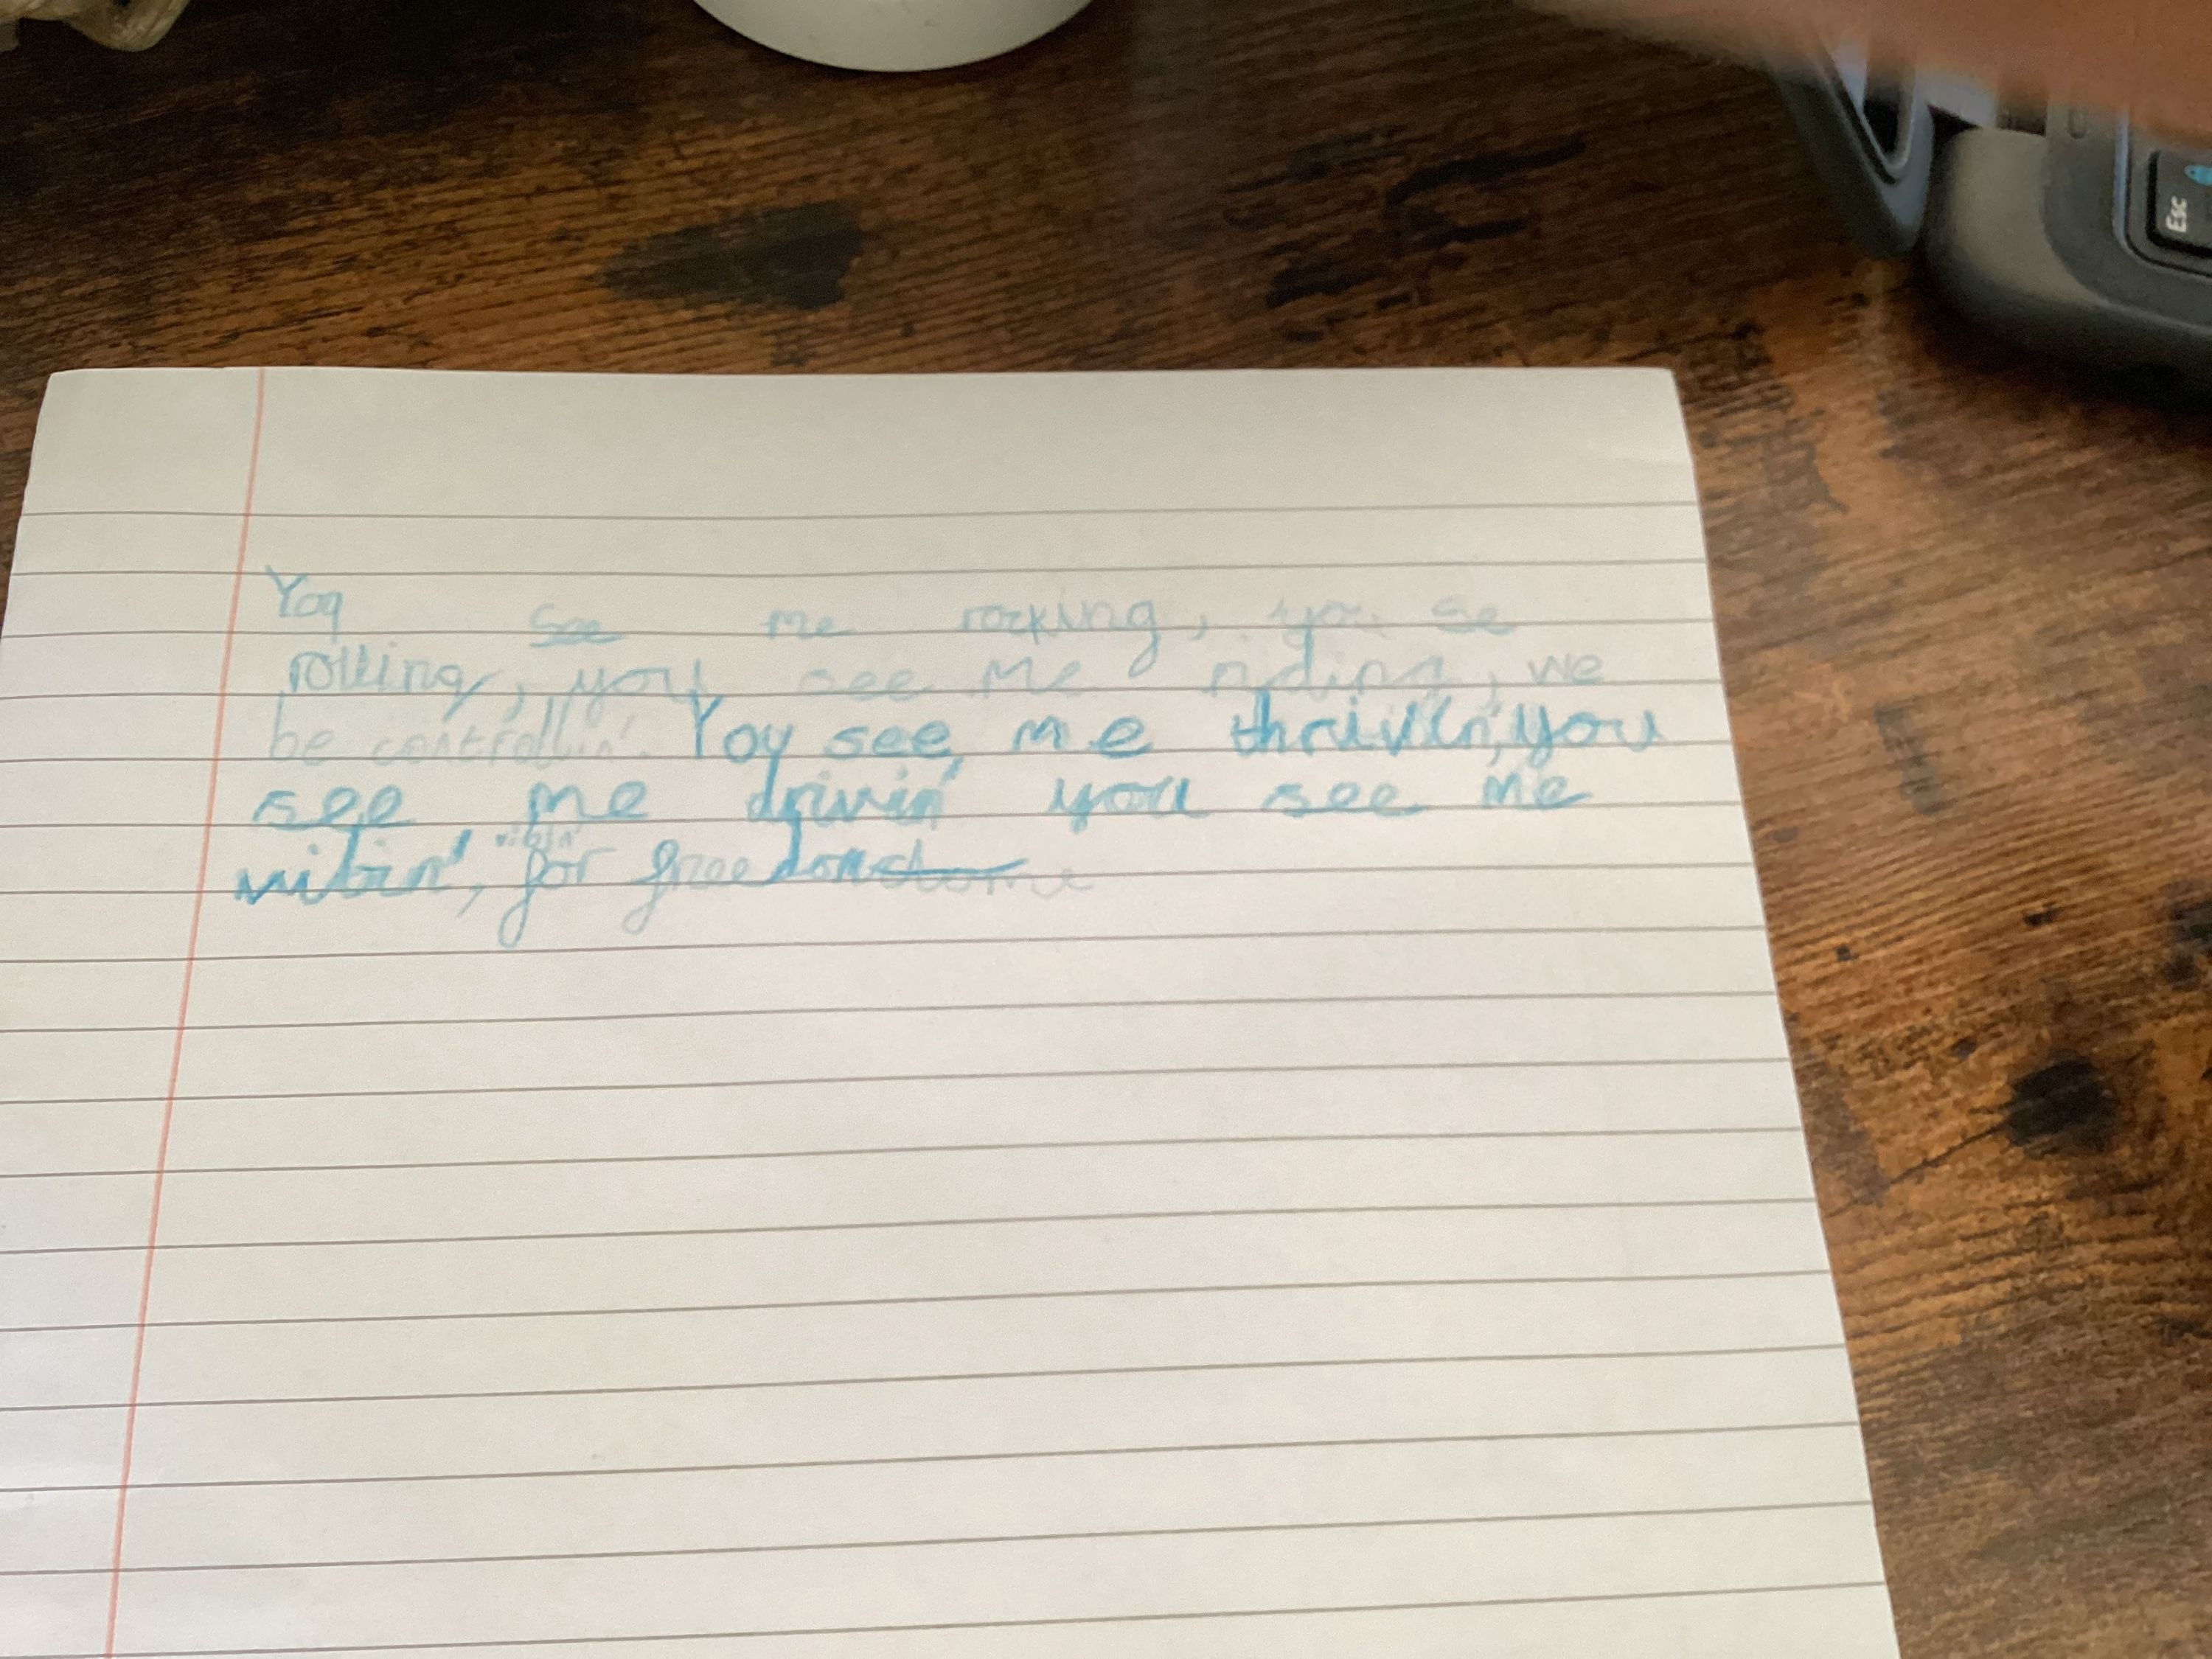 Esc
You see me rocking, you se
rolling, you see me riding, we
be controllin'. You see me thrivin', you
see me drivin' you see me
vibin', for freedom